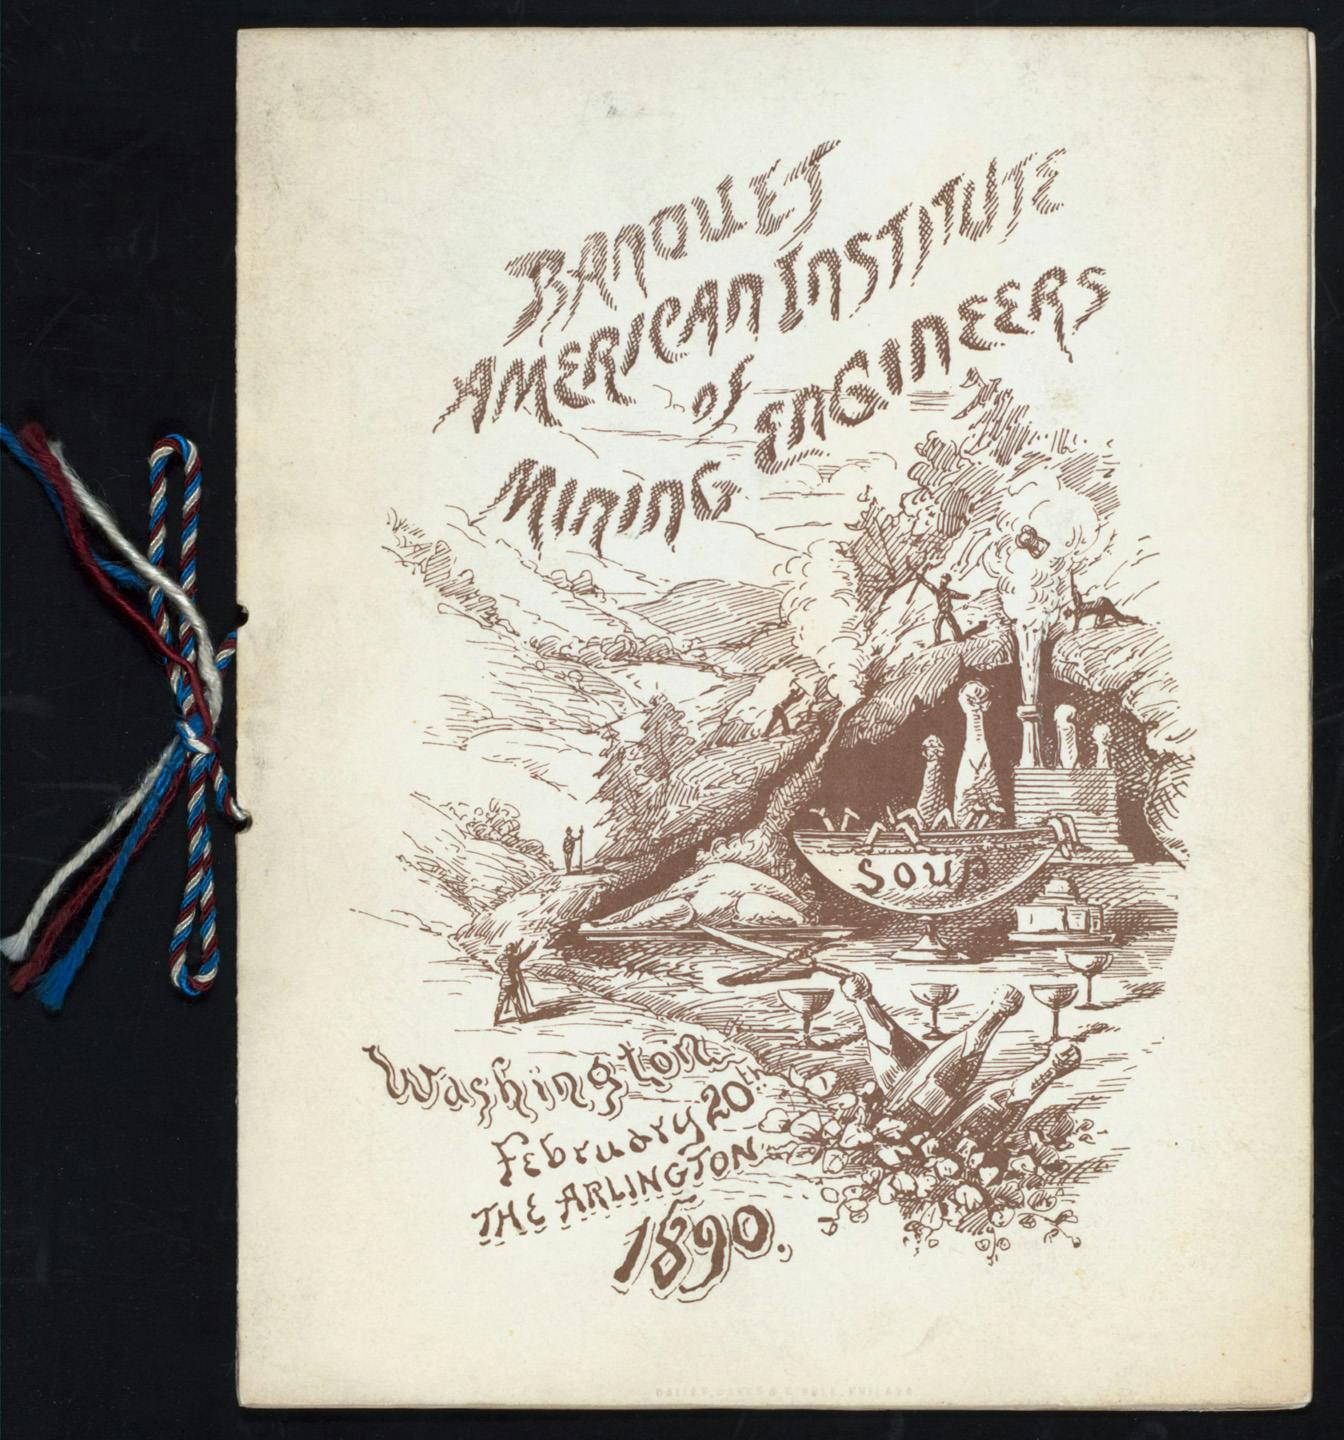 BANQUET
AMERICAN INSTITUTE
of
MINING ENGINEERS
SOUP
Washington
February 20th
THE ARLINGTON
1890.